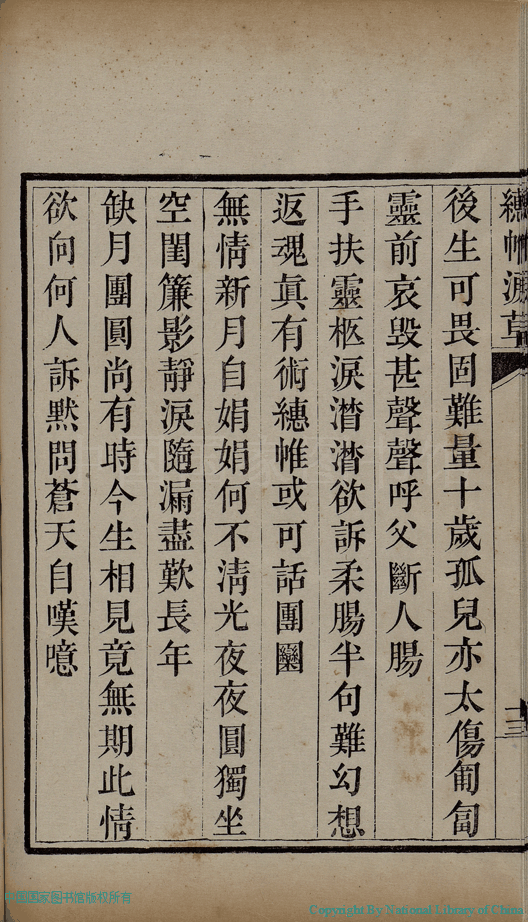 繐帷淚草
十三
後生可畏固難量十歲孤兒亦太傷匍匐
靈前哀毀甚聲聲呼父斷人腸
手扶靈柩淚潸潸欲訴柔腸半句難幻想
返魂眞有術繐帷或可話團圞
無情新月自娟娟何不淸光夜夜圓獨坐
空閨簾影靜淚隨漏盡歎長年
缺月團圓尚有時今生相見竟無期此情
欲向何人訴默問蒼天自嘆噫
中国国家图书馆版权所有
Copyright By National Library of China